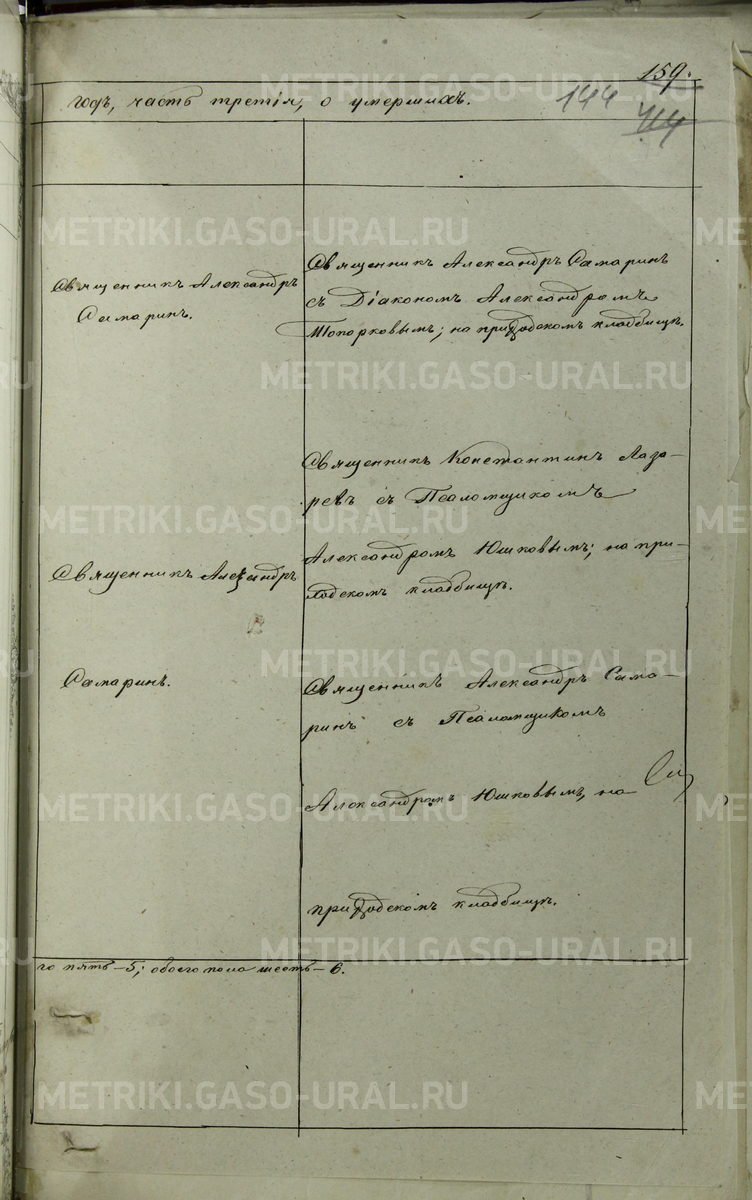 159.
годъ, часть третія, о умершихъ.
144
414
Священникъ Александръ
Самаринъ.
Священникъ Александръ Самаринъ
съ Діакономъ Александромъ
Топорковымъ; на приходскомъ кладбищѣ.
Священникъ Константинъ Лаза-
ревъ съ Псаломщикомъ
Александромъ Юшковымъ; на при-
ходскомъ кладбищѣ.
Священникъ Александръ
Самаринъ.
Священникъ Александръ Сама-
ринъ съ Псаломщикомъ
Александромъ Юшковымъ, на
приходскомъ кладбищѣ.
го пять-5; обоего пола шесть-6.
METRIKI.GASO-URAL.RU